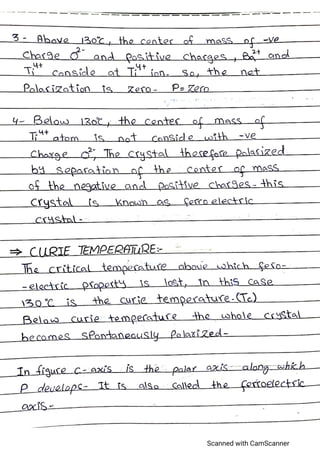 3- Above 130°C, the center of mass of -ve
Charge O²⁻ and positive charges, Ba²⁺ and
Ti⁴⁺ conside at Ti⁴⁺ ion. so, the net
Polarization is zero- P=Zero
4- Below 130°C, the center of mass of
Ti⁴⁺ atom is not conside with -ve
Charge O²⁻, The crystal therefore polarized
by separation of the center of mass
of the negative and positive charges- this
crystal is known as ferro electric
crystal-
⇒ CURIE TEMPERATURE:-
The critical temperature above which fero-
-electric property is lost, in this case
130°C is the curie temperature-(Tc)
Below curie temperature the whole crystal
becomes spontaneously polarized-
In figure c-axis is the polar axis along which
P develops- It is also called the ferroelectric
axis-
Scanned with CamScanner